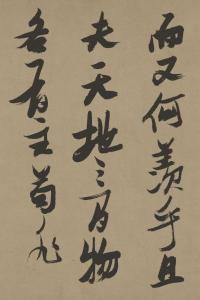 而又何羨乎且
夫天地之間物
各有主苟非